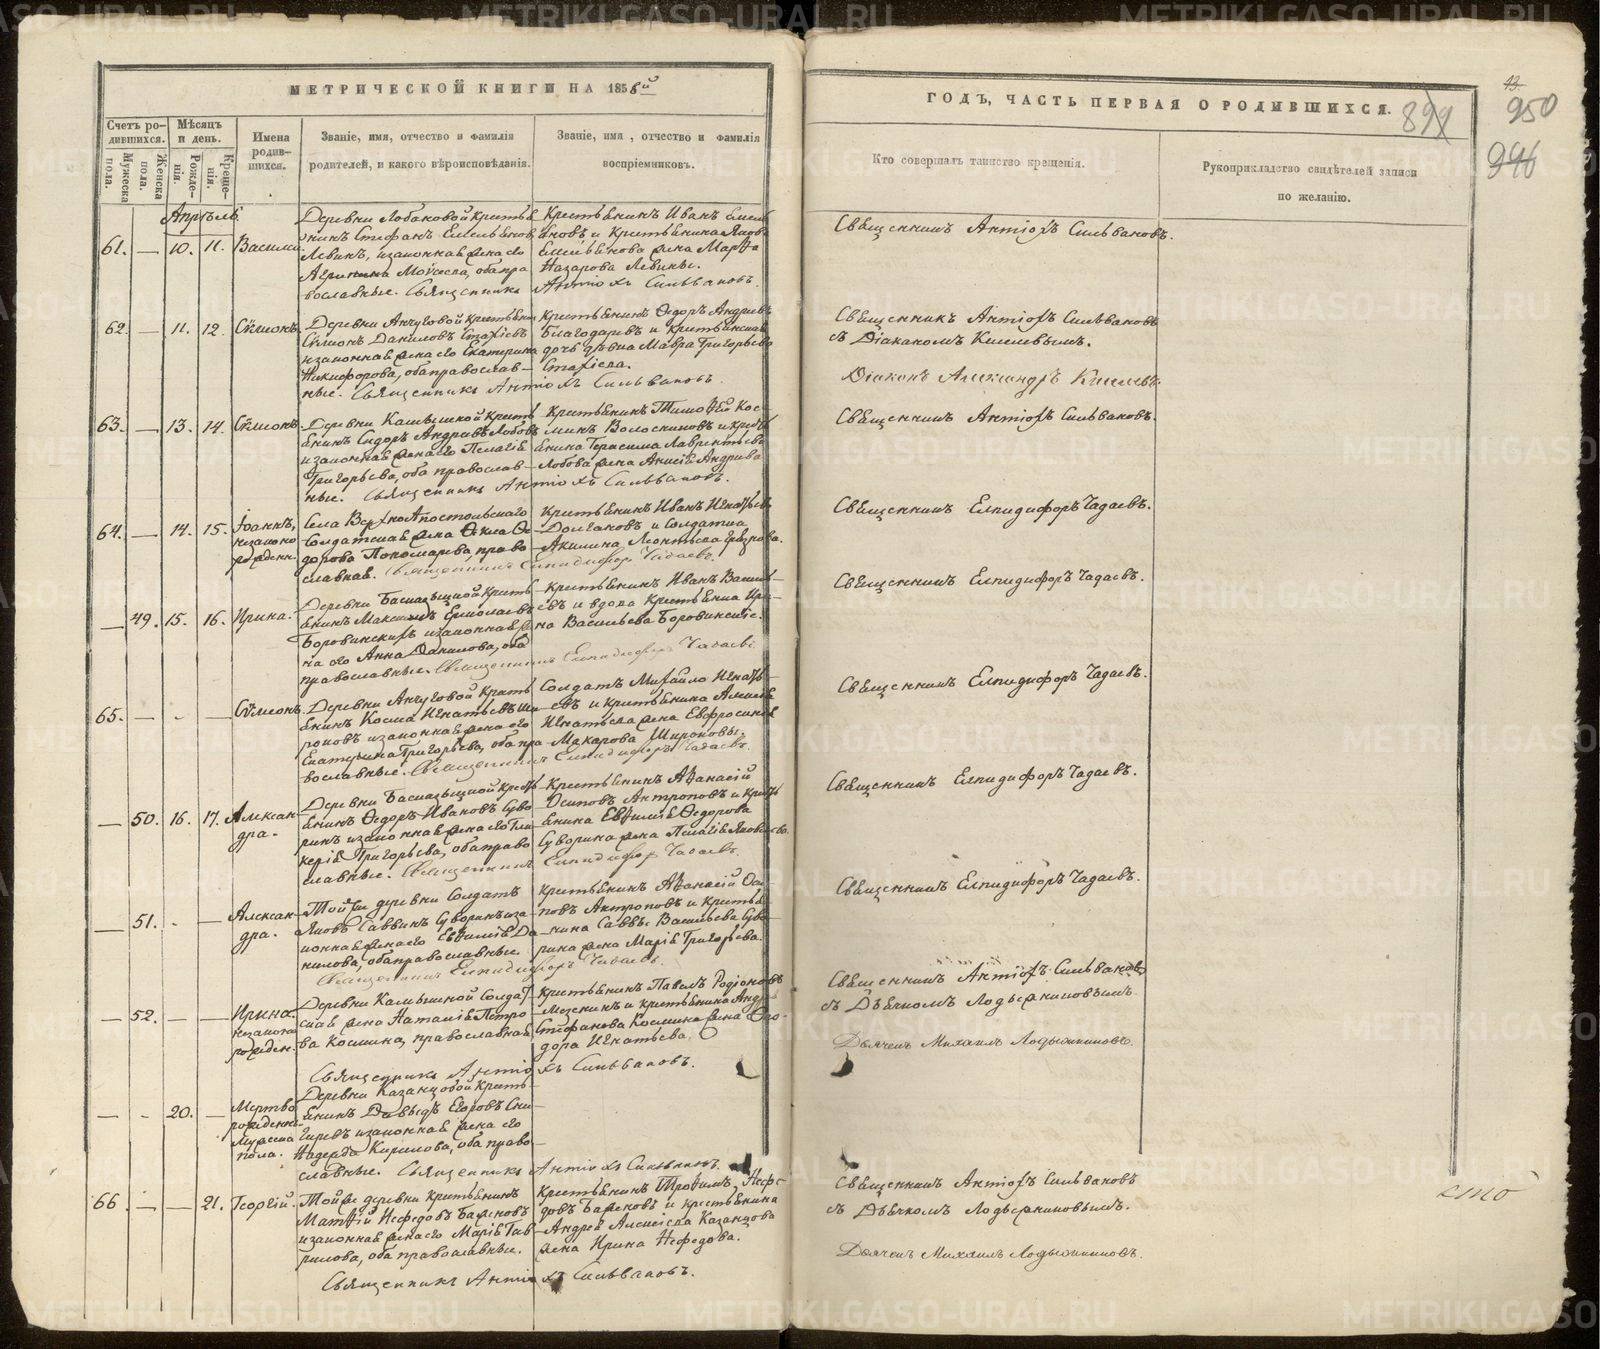 МЕТРИЧЕСКОЙ КНИГИ НА 1858й
ГОДЪ, ЧАСТЬ ПЕРВАЯ О РОДИВШИХСЯ.
899
950
Счетъ родившихся.
Мужеска пола.
Женска пола.
Мѣсяцъ и день.
Рожденія.
Крещенія.
Имена родившихся.
Званіе, имя, отчество и фамилія
родителей, и какого вѣроисповѣданія.
Званіе, имя, отчество и фамилія
воспріемниковъ.
Кто совершалъ таинство крещенія.
Рукоприкладство свидѣтелей записи
по желанію.
Апрѣль
61. — 10. 11. Василій
Деревни Лобановой крестья-
нинъ Стефанъ Емельяновъ
Левинъ, и законная жена его
Агрипина Моисеева, оба пра-
вославные. Священникъ Антіохъ Сильвановъ.
Крестьянинъ Иванъ Емель-
яновъ и крестьянина Якова
Емельянова жена Марѳа
Назарова Левины.
Священникъ Антіохъ Сильвановъ.
62. — 11. 12. Сѵмеонъ.
Деревни Анчуговой крестьянинъ
Сѵмеонъ Даниловъ Стахіевъ
и законная жена его Екатерина
Никифорова, оба православ-
ные. Священникъ Антіохъ Сильвановъ.
Крестьянинъ Ѳедоръ Андреевъ
Благодаревъ и крестьянская
дочь дѣвка Мавра Григорьева
Стахіева.
Священникъ Антіохъ Сильвановъ
съ Діакономъ Киселевымъ.
Діаконъ Александръ Киселевъ
63. — 13. 14. Сѵмеонъ.
Деревни Камышной кресть-
янинъ Сидоръ Андреевъ Лобовъ
и законная жена его Пелагія
Григорьева, оба православ-
ные. Священникъ Антіохъ Сильвановъ.
Крестьянинъ Тимоѳей Кос-
минъ Волосниковъ и кресть-
янина Герасима Лаврентьева
Лобова жена Анисія Андреева
Священникъ Антіохъ Сильвановъ.
64. — 14. 15. Іоаннъ,
незаконно
рожденн.
Села Верхно Апостольскаго
Солдатская жена Ѳекла Ѳе-
дорова Пономарева, право-
славная. Священникъ Елпидифоръ Чадаевъ.
Крестьянинъ Иванъ Игнатьевъ
Долгановъ и Солдатка
Акилина Леонтьева Грязнова.
Священникъ Елпидифоръ Чадаевъ.
— 49. 15. 16. Ирина.
Боровинскихъ и законная же-
на его Анна Данилова, оба
православные. Священникъ Елпидифоръ Чадаевъ
Крестьянинъ Иванъ Василь-
евъ и вдова крестьянка Ири-
на Васильева Боровинскіе.
Священникъ Елпидифоръ Чадаевъ.
65. — - — Сѵмеонъ.
Деревни Анчуговой кресть-
янинъ Косма Игнатьевъ Ши-
роковъ и законная жена его
Екатерина Григорьева, оба пра-
вославные. Священникъ Елпидифоръ Чадаевъ.
Солдатъ Михайло Игнать-
евъ и крестьянина Алексѣя
Игнатьева жена Евфросинія
Макарова Широковы.
Священникъ Елпидифоръ Чадаевъ.
— 50. 16. 17. Алексан-
дра.
янинъ Ѳедоръ Ивановъ Суво-
ринъ и законная жена его Гли-
керія Григорьева, оба право-
славные. Священникъ Елпидифоръ Чадаевъ.
Крестьянинъ Аѳанасій
Осиповъ Антроповъ и кресть-
янина Евѳимія Ѳедорова
Суворина жена Пелагія Яковлева.
Священникъ Елпидифоръ Чадаевъ.
— 51. - — Алексан-
дра.
Той же деревни Солдатъ
Яковъ Саввинъ Суворинъ и за-
конная жена его Евѳимія Да-
нилова, оба православные.
Священникъ Елпидифоръ Чадаевъ.
Крестьянинъ Аѳанасій Оси-
повъ Антроповъ и крестья-
нина Саввы Васильева Суво-
рина жена Марія Григорьева.
Священникъ Елпидифоръ Чадаевъ.
— 52. — — Ирина.
незаконно
рожден.
Деревни Камышной Солдат-
ская жена Наталія Петро-
ва Космина, православная
Священникъ Антіохъ Сильвановъ.
Крестьянинъ Павелъ Родіоновъ
Мезенинъ и крестьянина Андрея
Стефанова Космина жена Ѳео-
дора Игнатьева.
Священникъ Антіохъ Сильвановъ
съ Дьячкомъ Лодыжниковымъ.
Дьячекъ Михаилъ Лодыжниковъ.
— - 20. — Мертво
рожденн.
Мужеска
пола.
Деревни Казанцовой кресть-
янинъ Давыдъ Егоровъ Сни-
гиревъ и законная жена его
Надежда Кирилова, оба право-
славные. Священникъ Антіохъ Сильвановъ.
66 — — 21. Георгій.
Той же деревни крестьянинъ
Матѳій Нефедовъ Баженовъ
и законная жена его Марія Гав-
рилова, оба православные.
Священникъ Антіохъ Сильвановъ.
Крестьянинъ Трофимъ Нефе-
довъ Баженовъ и крестьянина
Андрея Алексіева Казанцова
жена Ирина Нефедова.
Священникъ Антіохъ Сильвановъ
съ Дьячкомъ Лодыжниковымъ.
Дьячекъ Михаилъ Лодыжниковъ.
METRIKI.GASO-URAL.RU